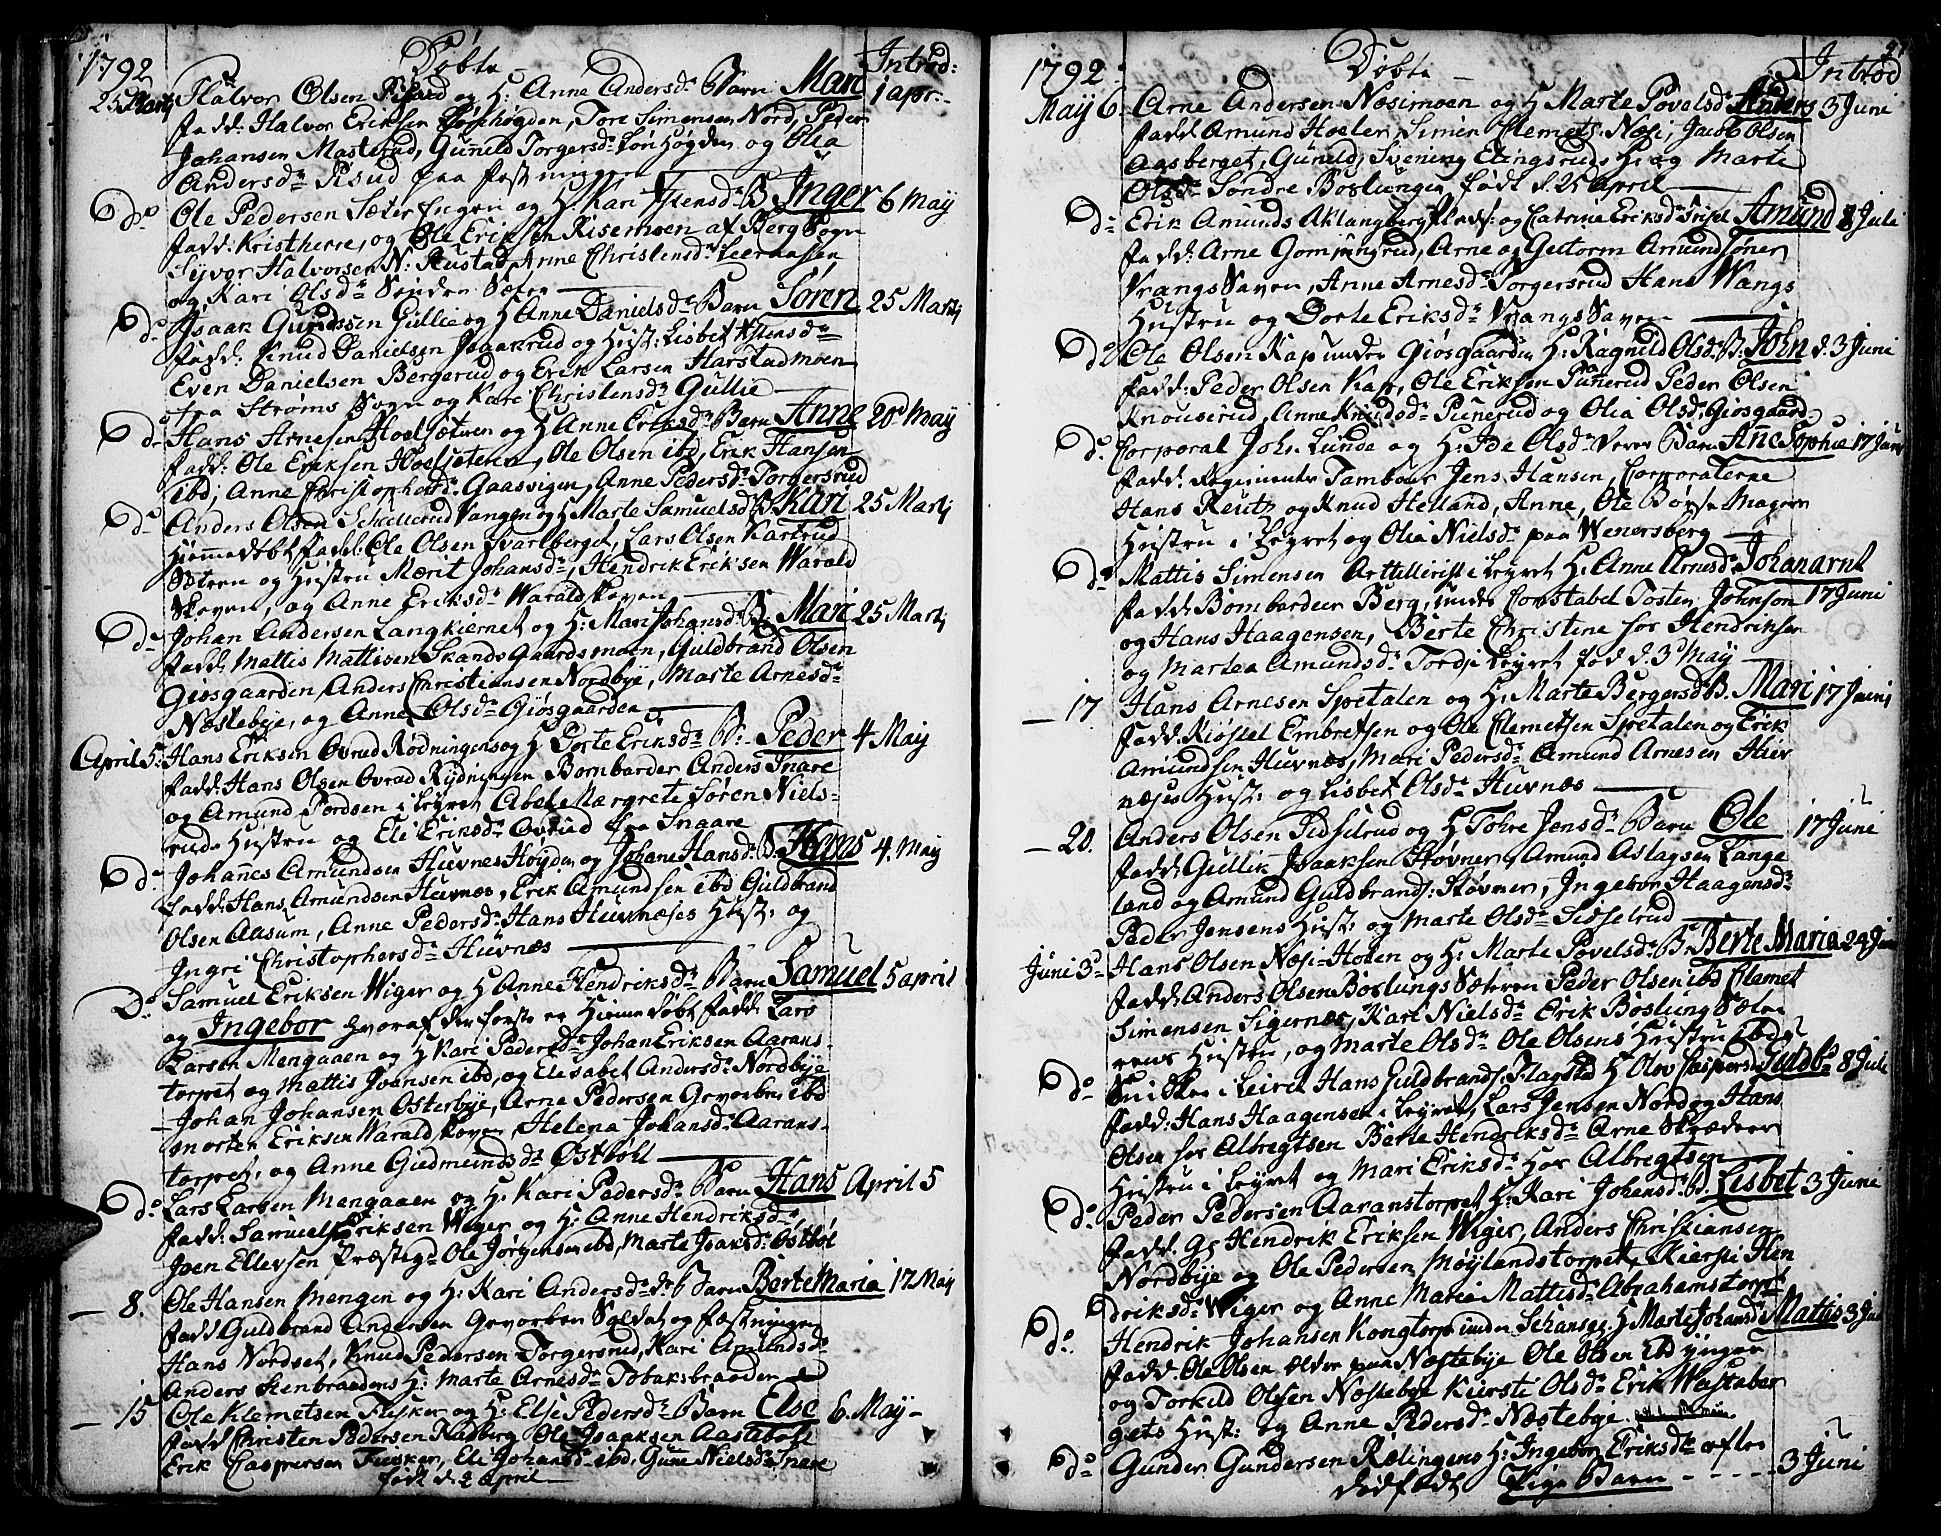 1792 Döbte Introd:
25 Martj Halvor Olsen Risud og H: Anne Andersd: Barn Mari 1 apr.
fadd: Halvor Eriksen Tore Simensen Nord, Peder
Johansen Masterud, Guneld Torgersd: Lönhögden og Olia
Andersd: Risud paa fæstningen
do Ole Pedersen Sæter Engen og H Kari Jensd: B Inger 6 May
fadd: Kristherre, og Ole Eriksen Risemoen af Berg Sogn
Syver Halvorsen N: Rustad Anne Christensd: Leernæssen
og Kari Olsd: Sondre Sæter
do Isaak Gundersen Gullie og H Anne Danielsd: Barn Sören 25 Martj
fadd: Knud Danielsen Isaakrud og Hust: Lisbet Jensd:
Even Danielsen Bergerud og Even Larsen Harstadmoen
fra Ströms Sogn og Kari Christensd: Gullie
do Hans Arnesen Hoelsæteren og H Anne Eriksd: Barn Anne 20 May
fadd: Ole Eriksen Hoelseteren, Ole Olsen ibd, Erik Hansen
ibd; Anne Christophersd: Gaasvigen, Anne Pedersd: Torgersrud
do Anders Olsen Skillerud Vangen og H Marte Samuelsd: B. Kari 25 Martj
Hiemmedöbt fadd: Ole Olsen Svartberget, Lars Olsen Kartrud
Sætren og Hustru Mærit Johansd:, Hendrik Eriksen Warald
Skoven, og Anne Eriksd: Waraldskoven
do Johan Andersen Langkiernet og H: Mari Johansd: B: Mari 25 Martj
fadd: Mattis Mattisen Skands Gaardsmoen, Guldbrand Olsen
Giösgaarden Anders Christiansen Nordbye, Marte Arnesd:
Næstebye, og Anne Olsd: Giösgaarden
April 5: Hans Eriksen Ovrud Rödningen og H Dorte Eriksd: B: Peder 4 May
fadd: Hans Olsen Ovrud Rydningen Bombarder Anders Snare
og Amund Tordsen i Leyret Abel Margrete Sören Niels-
ruds Hustru og Eli Eriksd: Ovrud fra Snaare
do Johanes Amundsen Huvnes Höyden og Johane Hansd: B: Hans 4. May
fadd: Hans Amundsen Huvnæs, Erik Amundsen ibd Guldbrand
Olsen Aasum, Anne Pedersd: Hans Huvnæses Hust: og
Ingri Christophersd: Huvnæs
Do Samuel Eriksen Wiger og H Anne Hendriksd: Barn Samuel 5 april
og Ingebor hvoraf den förste er Hiemme döbt fadd: Lars
Larsen Mengaaen og H Kari Pedersd: Johan Eriksen Aarans-
torpet og Mattis Ivensen ibd, og Elisabet Andersd: Nordbye
- Johan Johansen Österbye, Arne Pedersen Gevorben ibd
morten Eriksen Waraldskoven, Helena Johansd: Aarans-
torpet, og Anne Giedmundsd: Östböl
do Lars Larsen Mengaaen og H: Kari Pedersd: Barn Hans April 5
fadd: Samuel Eriksen Wiger og H: Anne Hendriksd:
Joen Ellevsen Præsteg: Ole Jörgensen ibd, Marte Isaksd: Östböl
- 8. Ole Hansen Mengen og H: Kari Andersd: Barn Berte Maria 17 May
fadd Guldbrand Andersen Gevorben Soldat og fæstningen
Hans Nordset, Knud Pedersen Torgersrud, Kari Amundsd:
Anders Stenbraadens H: Marte Arnesd: Tobaksbraaden
- 15 Ole Klemetsen Fisker og H: Else Pedersd: Barn Else 6. May
fadd Christen Pedersen Kadberg Ole Isaaksen Aasteböl
Erik Caspersen Fusker, Eli Johansd: ibd, Gune Nielsd: Snare
födt d. 2 April
1792 Döbte Introd
May 6. Arne Andersen Næsimoen og H Marte Povelsd: Anders 3 Juni
fadd Amund Hoelen, Simen Clemets: Næsi, Jacob Olsen
Aasberget, Guneld Svening Elingsruds H: og Marte
Olsd: Söndre Böslungen, födt d. 25 April
do Erik Amunds Aklangberg Plads: og Catrine Eriksd: Amund 8 Juli
fadd: Arne Gommungrud, Arne og Guttorm Amundsöner
VrangsSaven, Anne Arnesd: Torgersrud Hans Wangs
Hustru og Dorte Eriksd: VrangsSaven
do Ole Olsen Kap under Giösgaarden H: Ragnild Olsd: B: John d. 3 Juni
fadd: Peder Olsen Kap, Ole Eriksen Punerud Peder Olsen
Knouserud, Anne Knudsd: Punerud og Olia Olsd: Giösgaard
do Corporal Joh. Lunde og H: Ide Olsd: Barn Ane Sophie 17 Juni
fadd. Regimenter Tambour Jens Hansen, Corporalerne
Hans Reutz og Knud Helland, Anne, Ole Börse Magern
Hustru i Leyret og Olia Nielsd: paa Wenersberg
do Mattis Simensen Artellerist i Leyret H: Anne Arnesd: Johanarnt
fadd: Bombardeer Berg, under Constabel Tosten Johnson 17 Juni
og Hans Haagensen, Berte Christine for Hendriksen
og Martea Amundsd: Tordsi Leyret föd d. 3 May
- 17 Hans Arnesen Spetalen og H: Marte Bergersd: B. Mari 17 Juni
fadd. Kiöstel Embretsen og Ole Clemetsen Spetalen og Erik
Amundsen Huvnæs, Mari Pedersd: Amund Arnesen Huv
næses Hust: og Lisbet Olsd: Huvnæs
- 20. Anders Olsen Sidselrud og H Tohre Jensd: Barn Ole 17 Juni
fadd: Gullik Isaaksen Stövner, Amund Aslagsen Lange
land og Amund Guldbrands: Stövner, Ingebor Haagensd:
Peder Jensens Hust: og Marte Olsd: Sidselrud
Juni 3d Hans Olsen Næsi-Holen og H: Marte Povelsd: B: Berte Maria 24 Juni
fadd: Anders Olsen Böslungs Sæteren Peder Olsen ibd Clemet
Simensen Sigernæs, Kari Nielsd: Erik Böslung Sæte
rens Hustru, og Marte Olsd: Ole Olsens Hustru ibd
do Snidker i Leiret Hans Guldbrands. Flagstad H Olov Caspersd: Guldb: 8 Juli
fadd: Hans Haagensen i Leyret, Lars Jensen Nord og Hans
Olsen for Albregtsen Berte Hendriksd: Arne Skræder
Hustru i Leyret og Mari Eriksd: for Albregtsen
do Peder Pedersen Aaranstorpet H: Kari Johansd: B. Lisbet 3 Juni
fadd. Gs Hendrik Eriksen Wiger, Anders Christiansen
Nordbye og Ole Pedersen Möylandstorpet, Kiersti Hen
driksd: Wiger og Anne Maria Mattisd: Abrahamstorpet
do. Hendrik Johansen Kongtorp under Schansg. H Marte Johansd: Mattis 3 Juni
fadd. Ole Olsen ælder paa Næstebye Ole Olsen ibd yngre
og Torkild Olsen Næstebye Kierste Olsd: Erik Wastaber
gets Hust: og Anne Pedersd: Næstebye.
do Gunder Gundersen Rælingens H: Ingebor Eriksd: æfler
dödfödt Pige Barn - - - - - 3 Juni